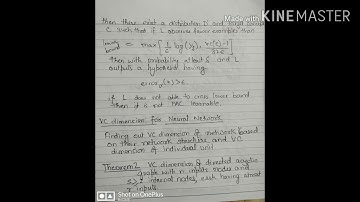 then there exist a distribution D and
C such that if L observes fewer examples than
Made with KINEMASTER
lower bound = max [ 1/ε log(1/δ), VC(C)-1 / 32ε ]
then with probability atleast δ and L
outputs a hypothesis having
error_D(h) > ε.
if L does not able to cross lower bound
then it is not PAC learnable.
VC dimension for Neural Network
Finding out VC dimension of network based
on their network structure and VC
dimension of individual unit
Theorem 2 VC dimension of directed acyclic
graph with n inputs nodes and
s≥2 internal nodes, each having atmost
r inputs.
Shot on OnePlus